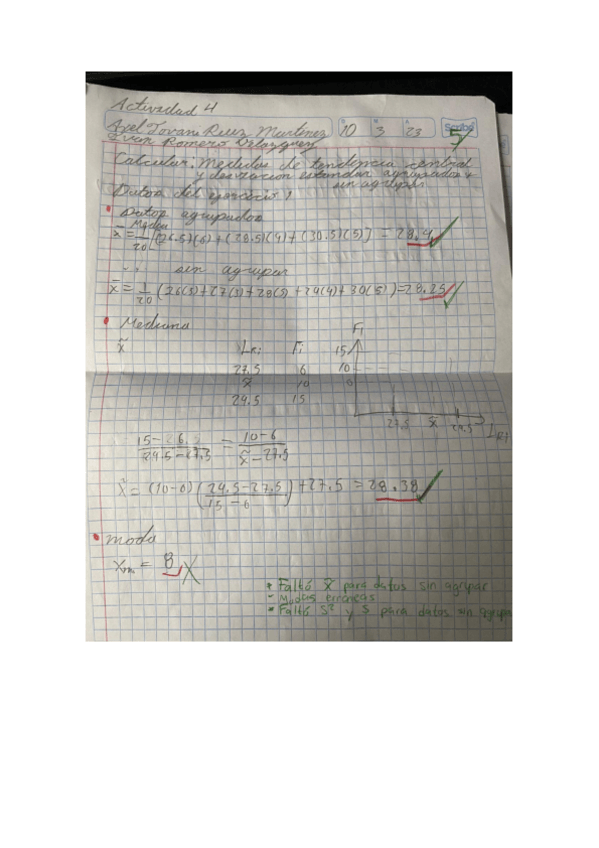 Actividad 4
Axel Jovani Ruiz Martinez 10 3 23 Scribe 5
Romero Velazquez
Calcular: Medidas de tendencia central
y desviacion estandar agrupados y
sin agrupar
Datos del ejercicio 1
• Datos agrupados
Media
x̄ = 1/20 [(26.5)(6) + (28.5)(9) + (30.5)(5)] = 28.4 ✓
sin agrupar
x̄ = 1/20 (26(3)+27(3)+28(5)+29(4)+30(5)) = 28.25 ✓
• Mediana
x̃ Fi
Fi 15
27.5 6 10
x̃ 10
29.5 15
27.5 x̃ 29.5
15-6 / 29.5-27.5 = 10-6 / x̃-27.5
x̃ = (10-6) (29.5-27.5 / 15-6) + 27.5 = 28.38 ✓
• moda
Xm = 8 X
* Faltó x̃ para datos sin agrupar
- Modas erróneas
* Faltó S² y S para datos sin agrupa